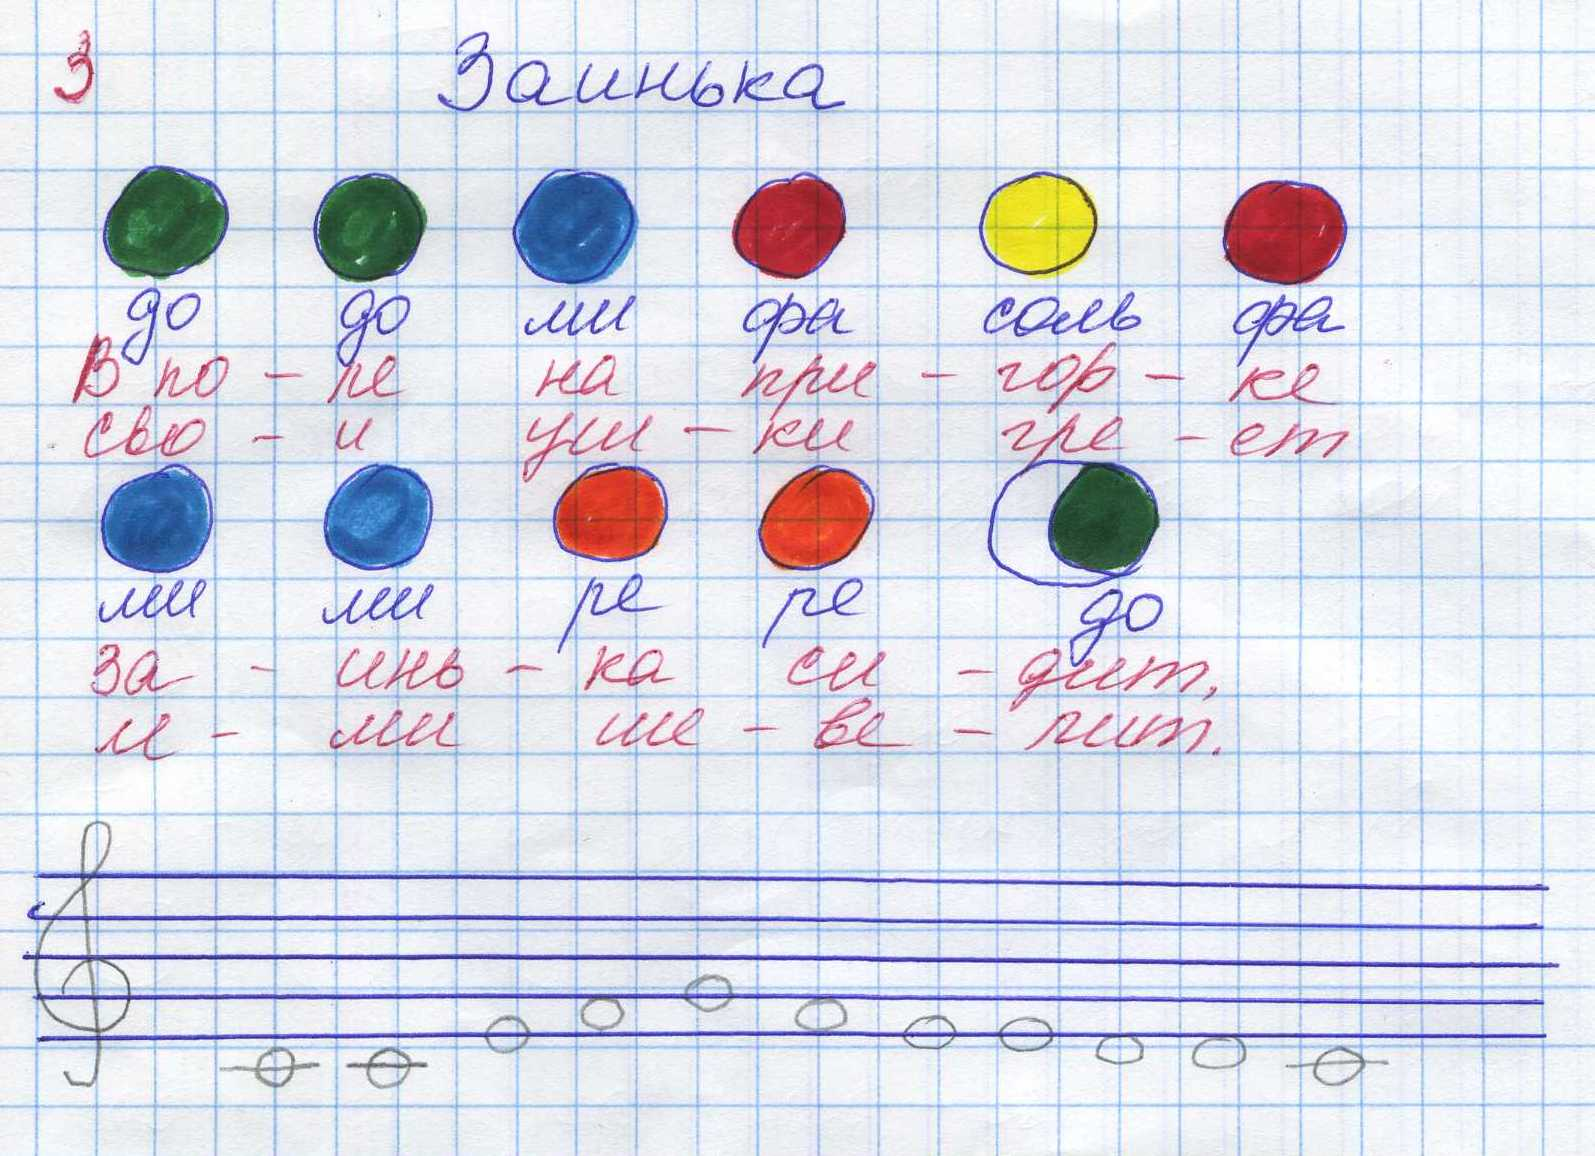 3 Заинька
до до ми фа соль фа
В по - ле на при - гор - ке
сво - и уш - ки гре - ет
ми ми ре ре до
за - инь - ка си - дит,
и - ми ше - ве - лит.